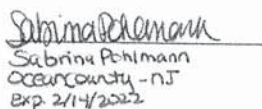 Sabrina Pohlmann
Sabrina Pohlmann
Ocean County - NJ
Exp. 2/14/2022